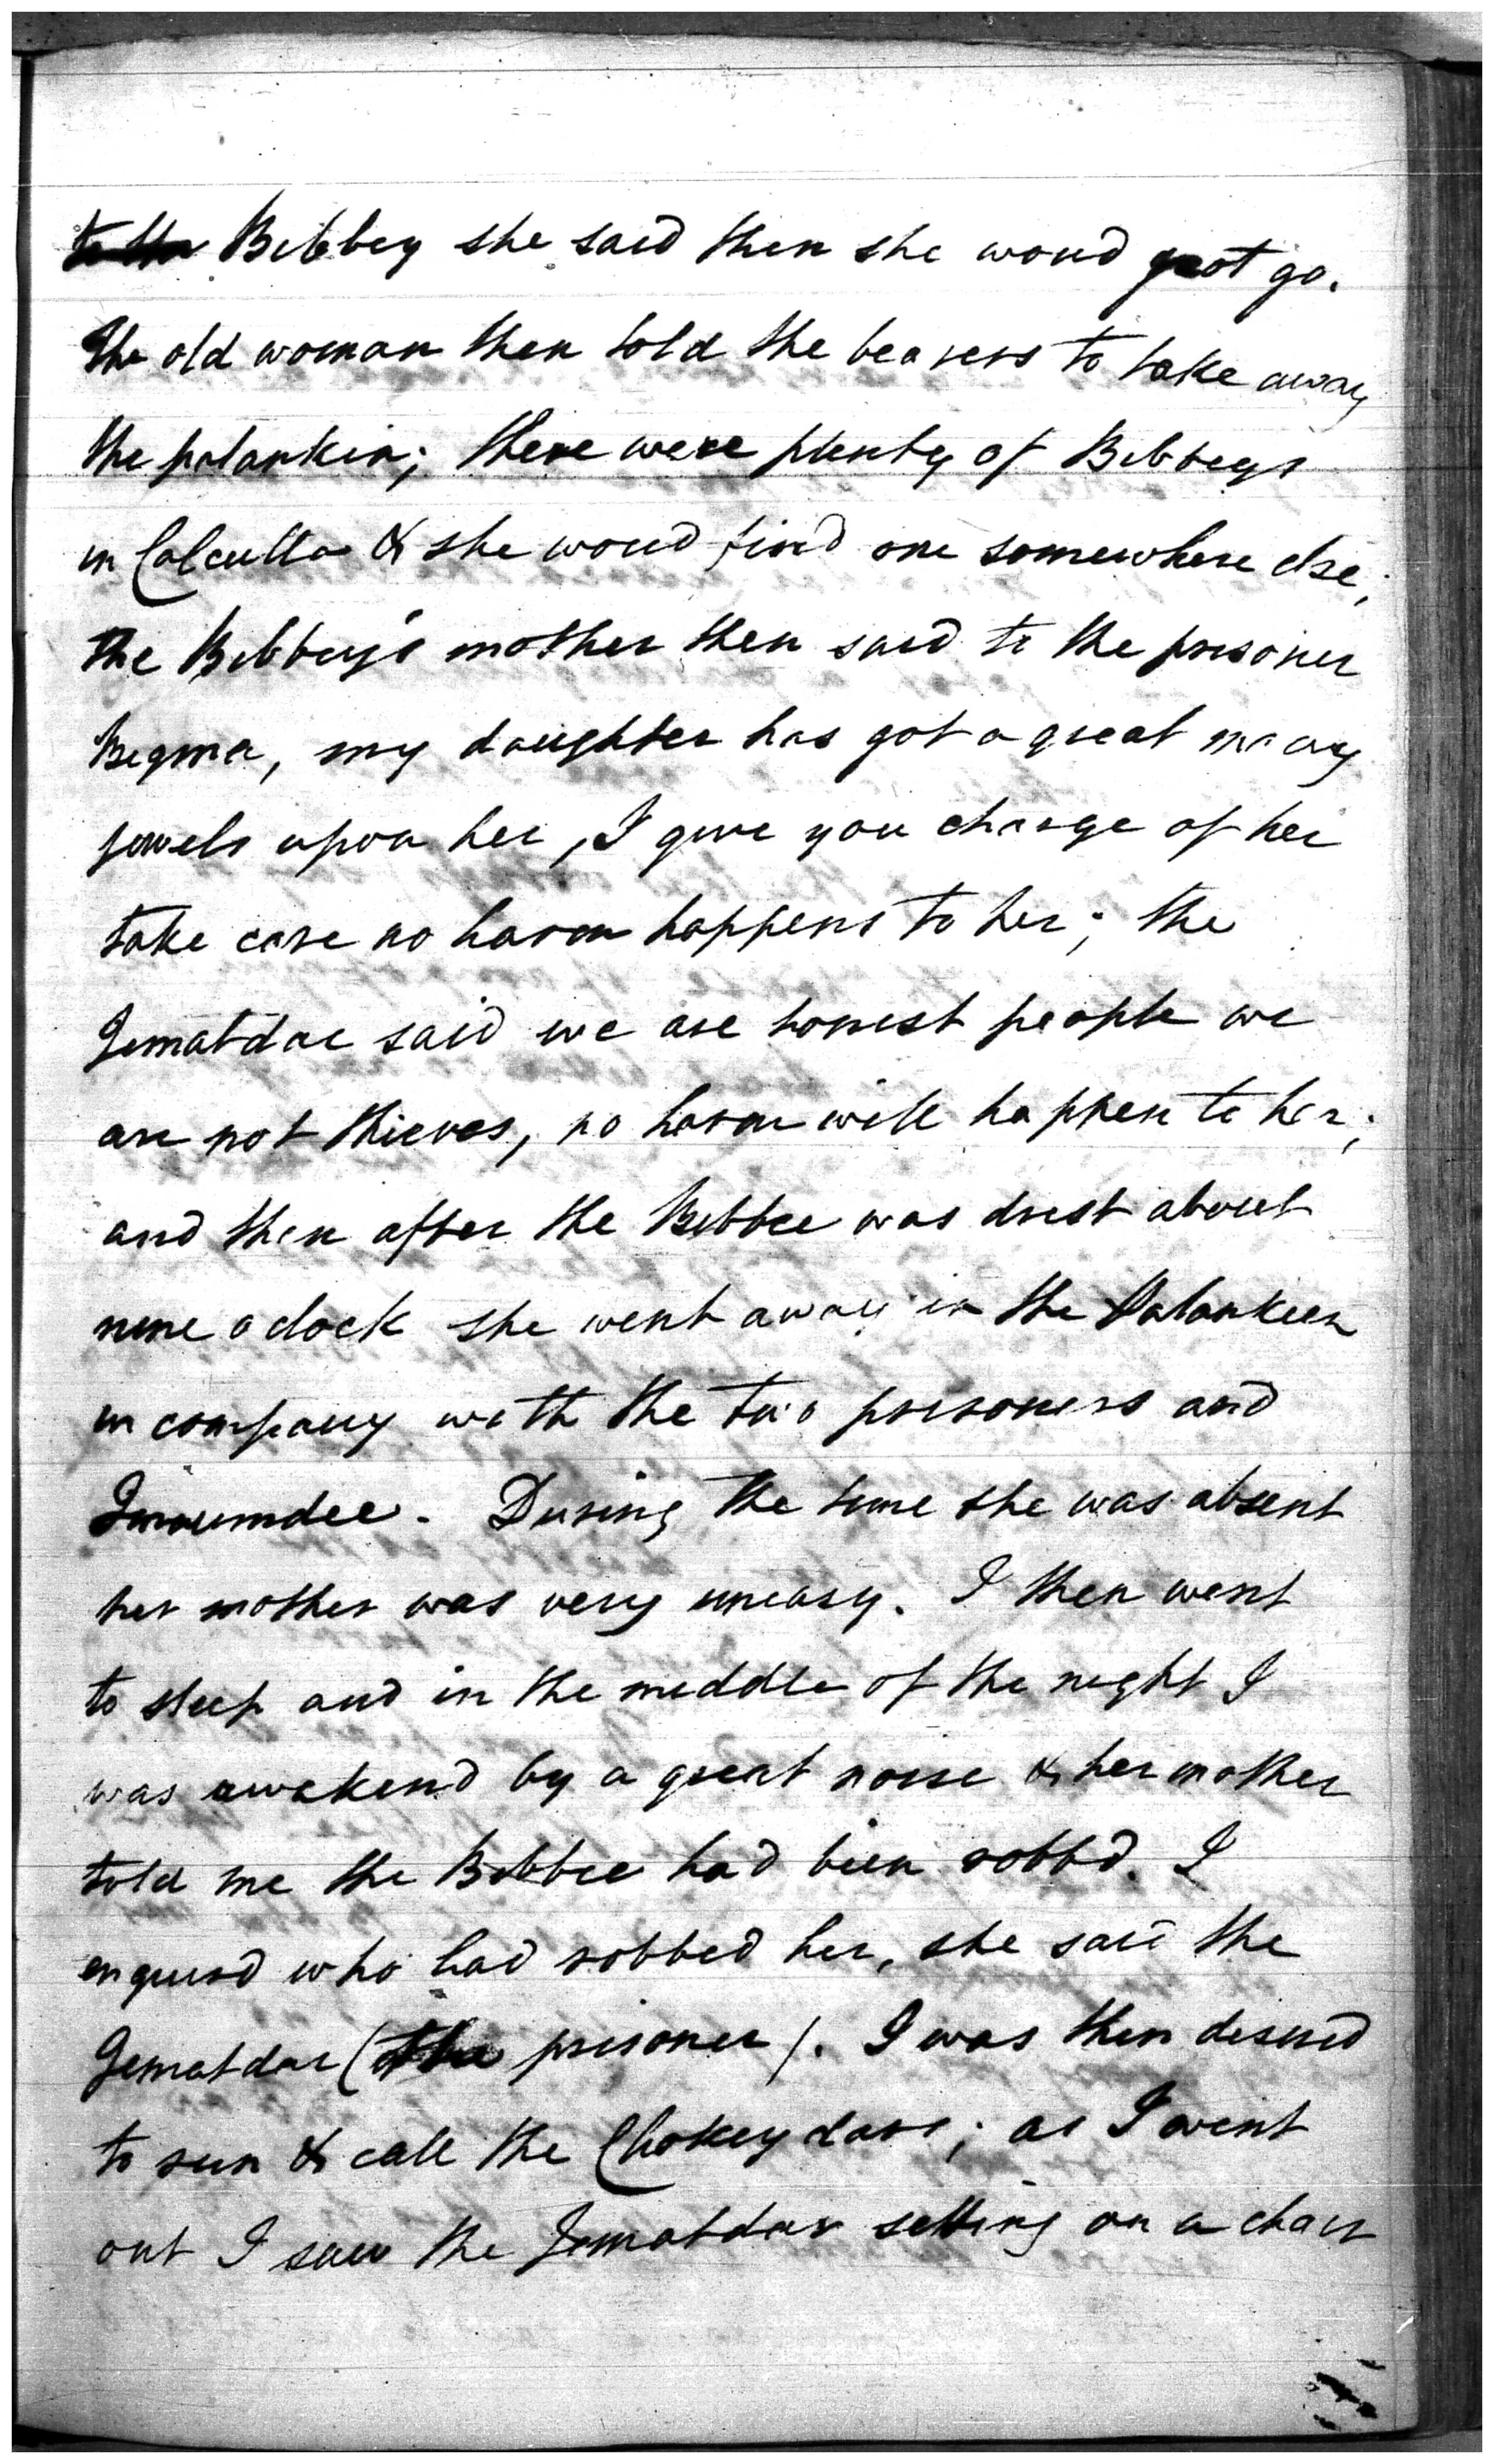 Bibbey she said then she woud not go.
The old woman then told the bearers to take away
the palankin; there were plenty of Bibbeys
in Calcutta & she woud find one somewhere else;
the Bibbey's mother then said to the prisoner
Begma, my daughter has got a great many
jewels upon her, I give you charge of her
take care no harm happens to her; the
Jematdar said we are honest people we
are not thieves, no harm will happen to her;
and then after the Bibbee was drest about
nine o clock she went away in the Palankeen
in company with the two prisoners and
During the time she was absent
her mother was very uneasy. I then went
to sleep and in the middle of the night I
was awakend by a great noise & her mother
told me the Bibbee had been robbd. I
enquird who had robbed her, she said the
Jematdar (the prisoner). I was then desired
to run & call the Chokeydars; as I went
out I saw the Jematdar setting on a chair